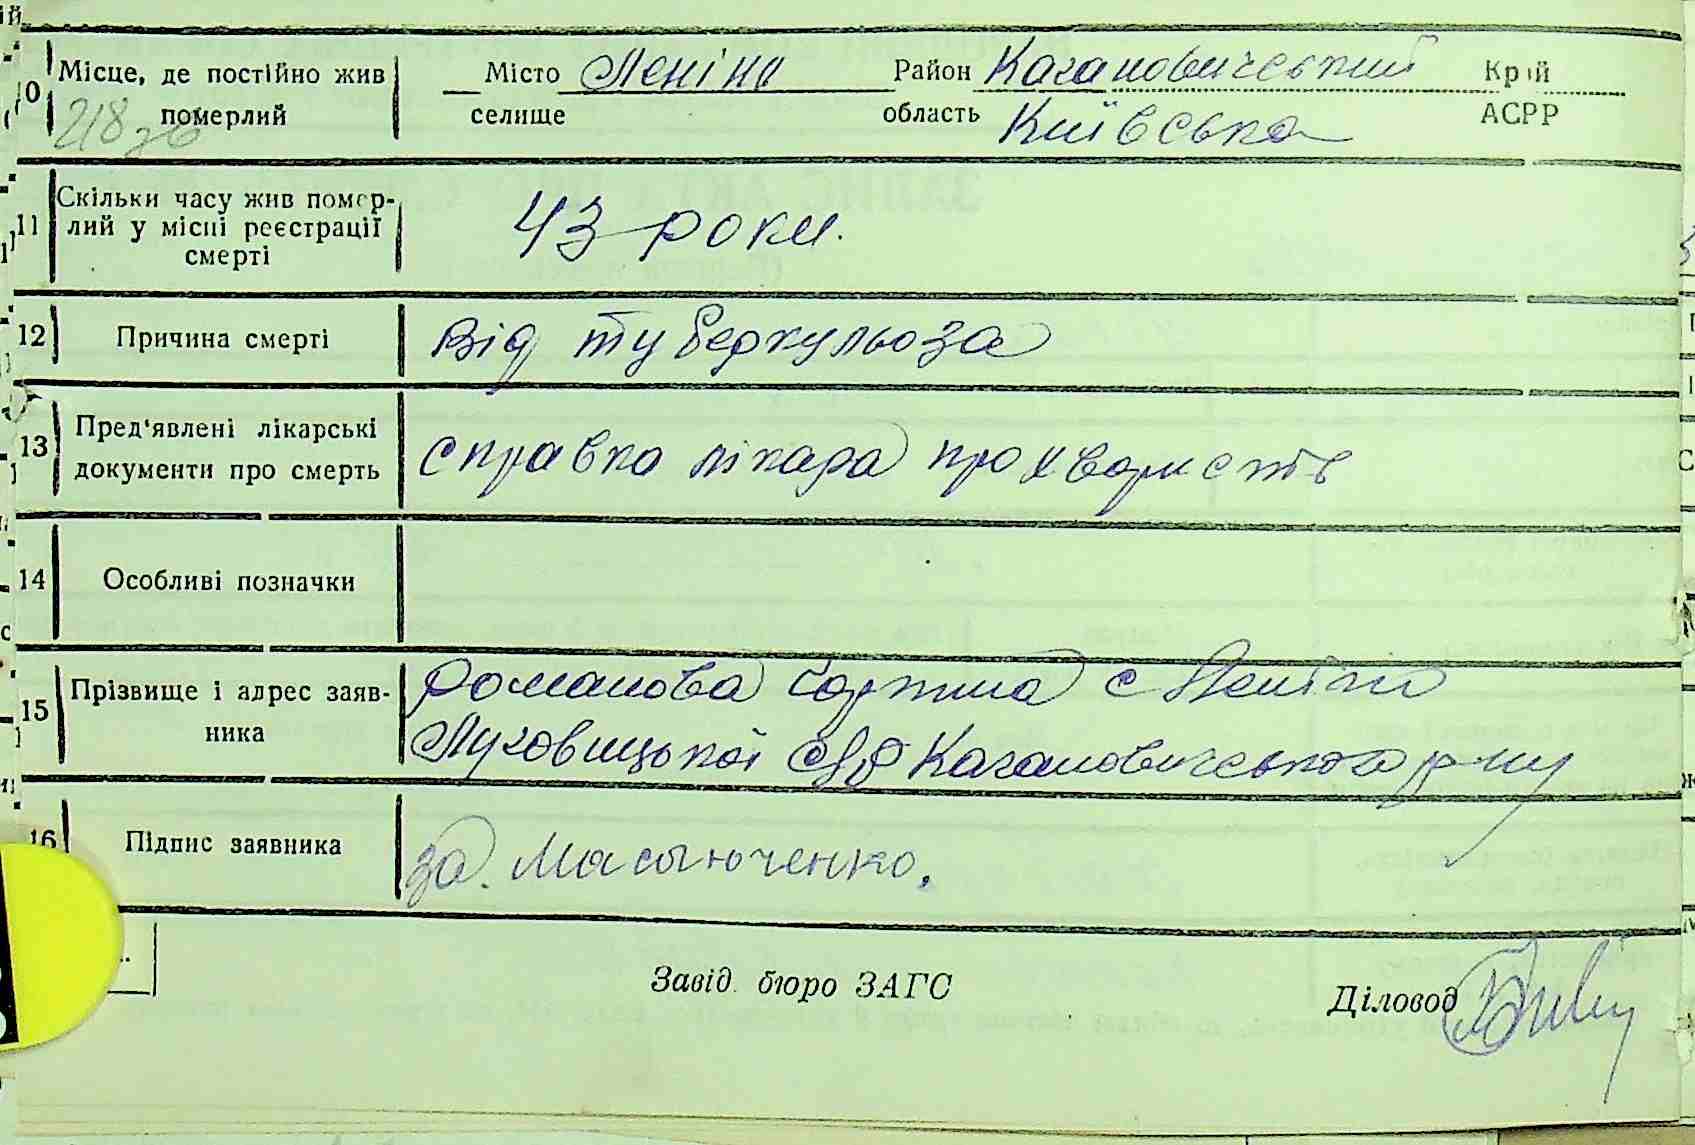 10 Місце, де постійно жив померлий
218зв
Місто Леніно Район Кагановичеський Край
селище область Київська АСРР
11 Скільки часу жив помер-
лий у місці реєстрації
смерті
43 роки.
12 Причина смерті від туберкульоза
13 Пред'явлені лікарські
документи про смерть
справка лікара про хвористь
14 Особливі позначки
15 Прізвище і адрес заяв-
ника
Романова с Леніно
Луговицької с/р Кагановичеського р-ну
16 Підпис заявника за.
Завід. бюро ЗАГС
Діловод